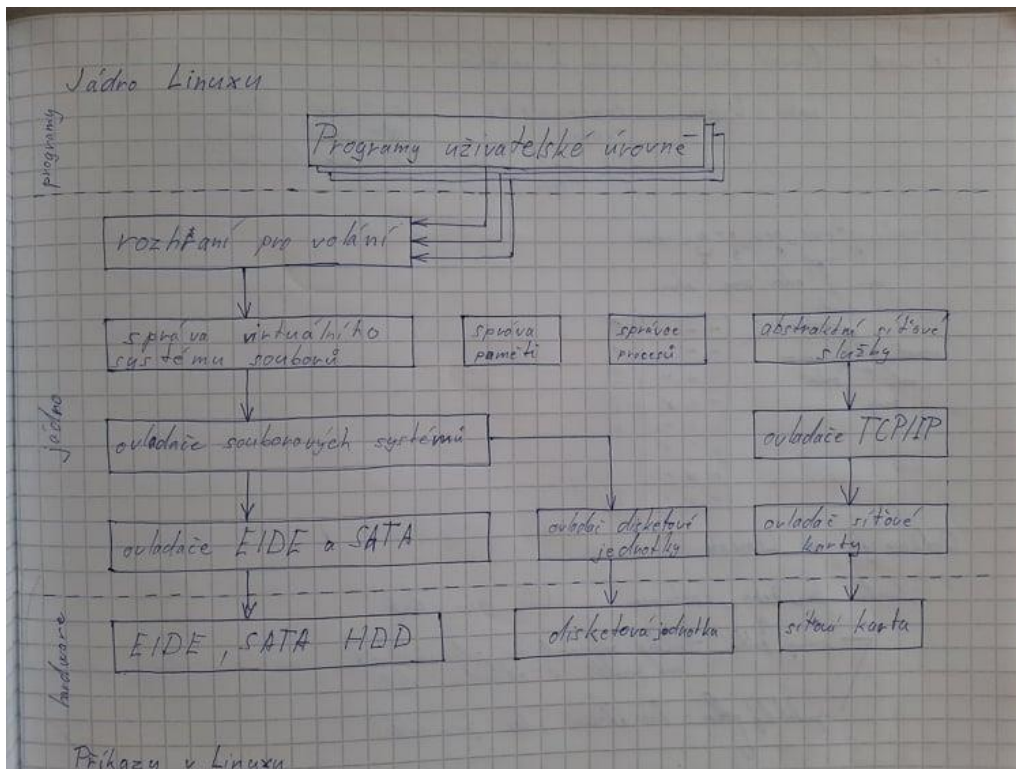 Jádro Linuxu
programy
Programy uživatelské úrovně
rozhraní pro volání
správa virtuálního
systému souborů
správa
paměti
správce
procesů
abstraktní síťové
služby
jádro
ovladače souborových systémů
ovladače TCP/IP
ovladače EIDE a SATA
ovladač disketové
jednotky
ovladač síťové
karty
hardware
EIDE, SATA HDD
disketová jednotka
síťová karta
Příkazy v Linuxu